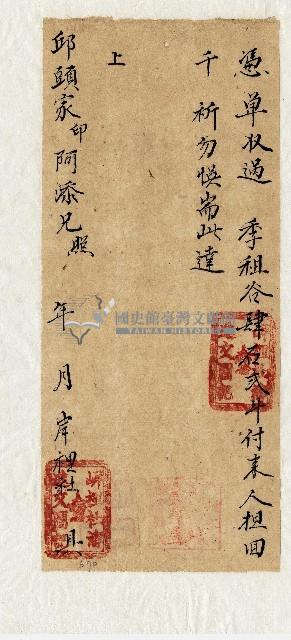 憑单收過　季租谷肆石弍斗付来人担回
千祈勿悮耑此達
上
邱頭家印阿添兄照
年　月　岸裡社具
國史館臺灣文獻館
TAIWAN HISTORICA
690